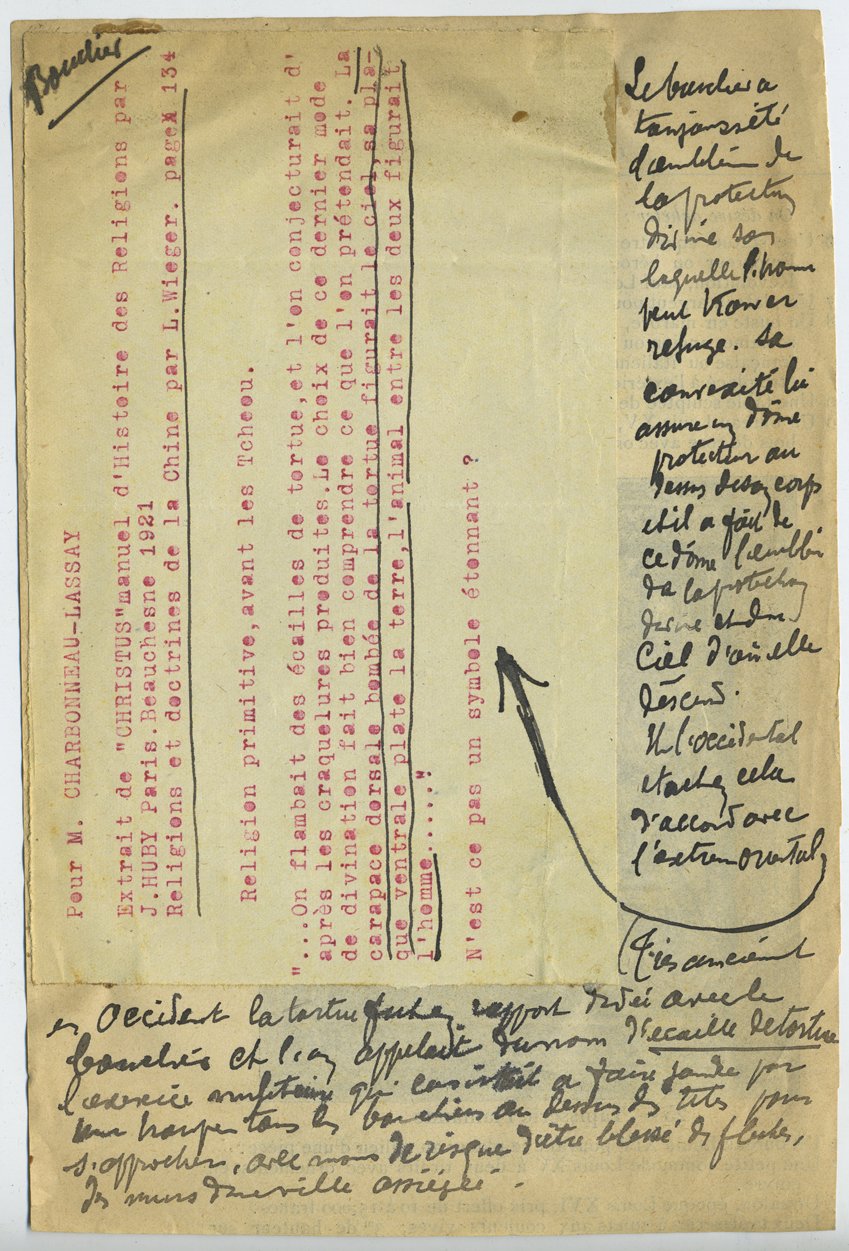 Bouclier
Pour M. CHARBONNEAU-LASSAY
Extrait de "CHRISTUS"manuel d'Histoire des Religions par
J.HUBY Paris.Beauchesne 1921
Religions et doctrines de la Chine par L.Wieger. page 134
Religion primitive,avant les Tcheou.
"...On flambait des écailles de tortue,et l'on conjecturait d'
après les craquelures produites.Le choix de ce dernier mode
de divination fait bien comprendre ce que l'on prétendait. La
carapace dorsale bombée de la tortue figurait le ciel,sa pla-
que ventrale plate la terre,l'animal entre les deux figurait
l'homme......"
N'est ce pas un symbole étonnant ?
Le bouclier a
toujours été
l'emblème de
la protection
divine sous
laquelle l'homme
peut trouver
refuge. Sa
convexité lui
assure un dôme
protecteur au
dessus de son corps
et il a fait de
ce dôme l'emblème
de la protection
divine et du
Ciel d'où elle
descend.
et l'occidental
est en cela
d'accord avec
l'extrême oriental,
(Très anciennement
en Occident la tortue fut en rapport d'idée avec le
bouclier et l'on appelait du nom d'écaille de tortue
l'exercice militaire qui consistait a faire joindre par
une troupe tous les boucliers au dessus des têtes pour
s'approcher, avec moins de risque d'être blessé des flèches,
des murs d'une ville assiégée.